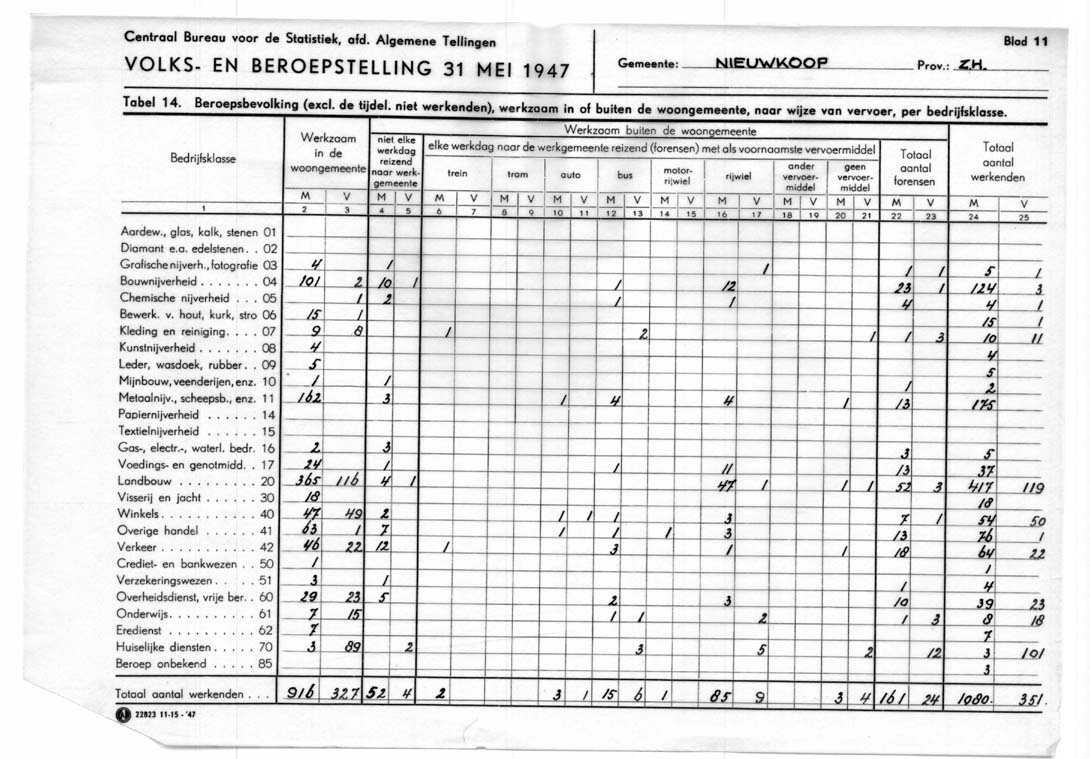 Centraal Bureau voor de Statistiek, afd. Algemene Tellingen
Blad 11
VOLKS- EN BEROEPSTELLING 31 MEI 1947
Gemeente: NIEUWKOOP Prov.: Z.H.
Tabel 14. Beroepsbevolking (excl. de tijdel. niet werkenden), werkzaam in of buiten de woongemeente, naar wijze van vervoer, per bedrijfsklasse.
Bedrijfsklasse
Werkzaam in de woongemeente
Werkzaam buiten de woongemeente
niet elke werkdag reizend naar werk-gemeente
elke werkdag naar de werkgemeente reizend (forensen) met als voornaamste vervoermiddel
trein tram auto bus motor-rijwiel rijwiel ander vervoer-middel geen vervoer-middel
Totaal aantal forensen
Totaal aantal werkenden
M V M V M V M V M V M V M V M V M V M V M V M V
1 2 3 4 5 6 7 8 9 10 11 12 13 14 15 16 17 18 19 20 21 22 23 24 25
Aardew., glas, kalk, stenen 01
Diamant e.a. edelstenen . . 02
Grafische nijverh., fotografie 03 4 1 1 1 1 5 1
Bouwnijverheid . . . . . . . 04 101 2 10 1 1 12 23 1 124 3
Chemische nijverheid . . . 05 1 2 1 1 4 4 1
Bewerk. v. hout, kurk, stro 06 15 1 15 1
Kleding en reiniging. . . . 07 9 8 1 2 1 1 3 10 11
Kunstnijverheid . . . . . . . 08 4 4
Leder, wasdoek, rubber. . 09 5 5
Mijnbouw, veenderijen, enz. 10 1 1 1 2
Metaalnijv., scheepsb., enz. 11 162 3 1 4 4 1 13 175
Papiernijverheid . . . . . . 14
Textielnijverheid . . . . . . 15
Gas-, electr.-, waterl. bedr. 16 2 3 3 5
Voedings- en genotmidd. . 17 24 1 1 11 13 37
Landbouw . . . . . . . . . 20 365 116 4 1 47 1 1 1 52 3 417 119
Visserij en jacht . . . . . . 30 18 18
Winkels . . . . . . . . . . . 40 47 49 2 1 1 1 3 7 1 54 50
Overige handel . . . . . . 41 63 1 7 1 1 1 3 13 76 1
Verkeer . . . . . . . . . . . 42 46 22 12 1 3 1 1 18 64 22
Crediet- en bankwezen . . 50 1 1
Verzekeringswezen . . . . 51 3 1 1 4
Overheidsdienst, vrije ber. . 60 29 23 5 2 3 10 39 23
Onderwijs . . . . . . . . . . 61 7 15 1 1 2 1 3 8 18
Eredienst . . . . . . . . . . 62 7 7
Huiselijke diensten . . . . . 70 3 89 2 3 5 2 12 3 101
Beroep onbekend . . . . . 85 3
Totaal aantal werkenden . . . 916 327 52 4 2 3 1 15 6 1 85 9 3 4 161 24 1080. 351.
22823 11-15 - '47